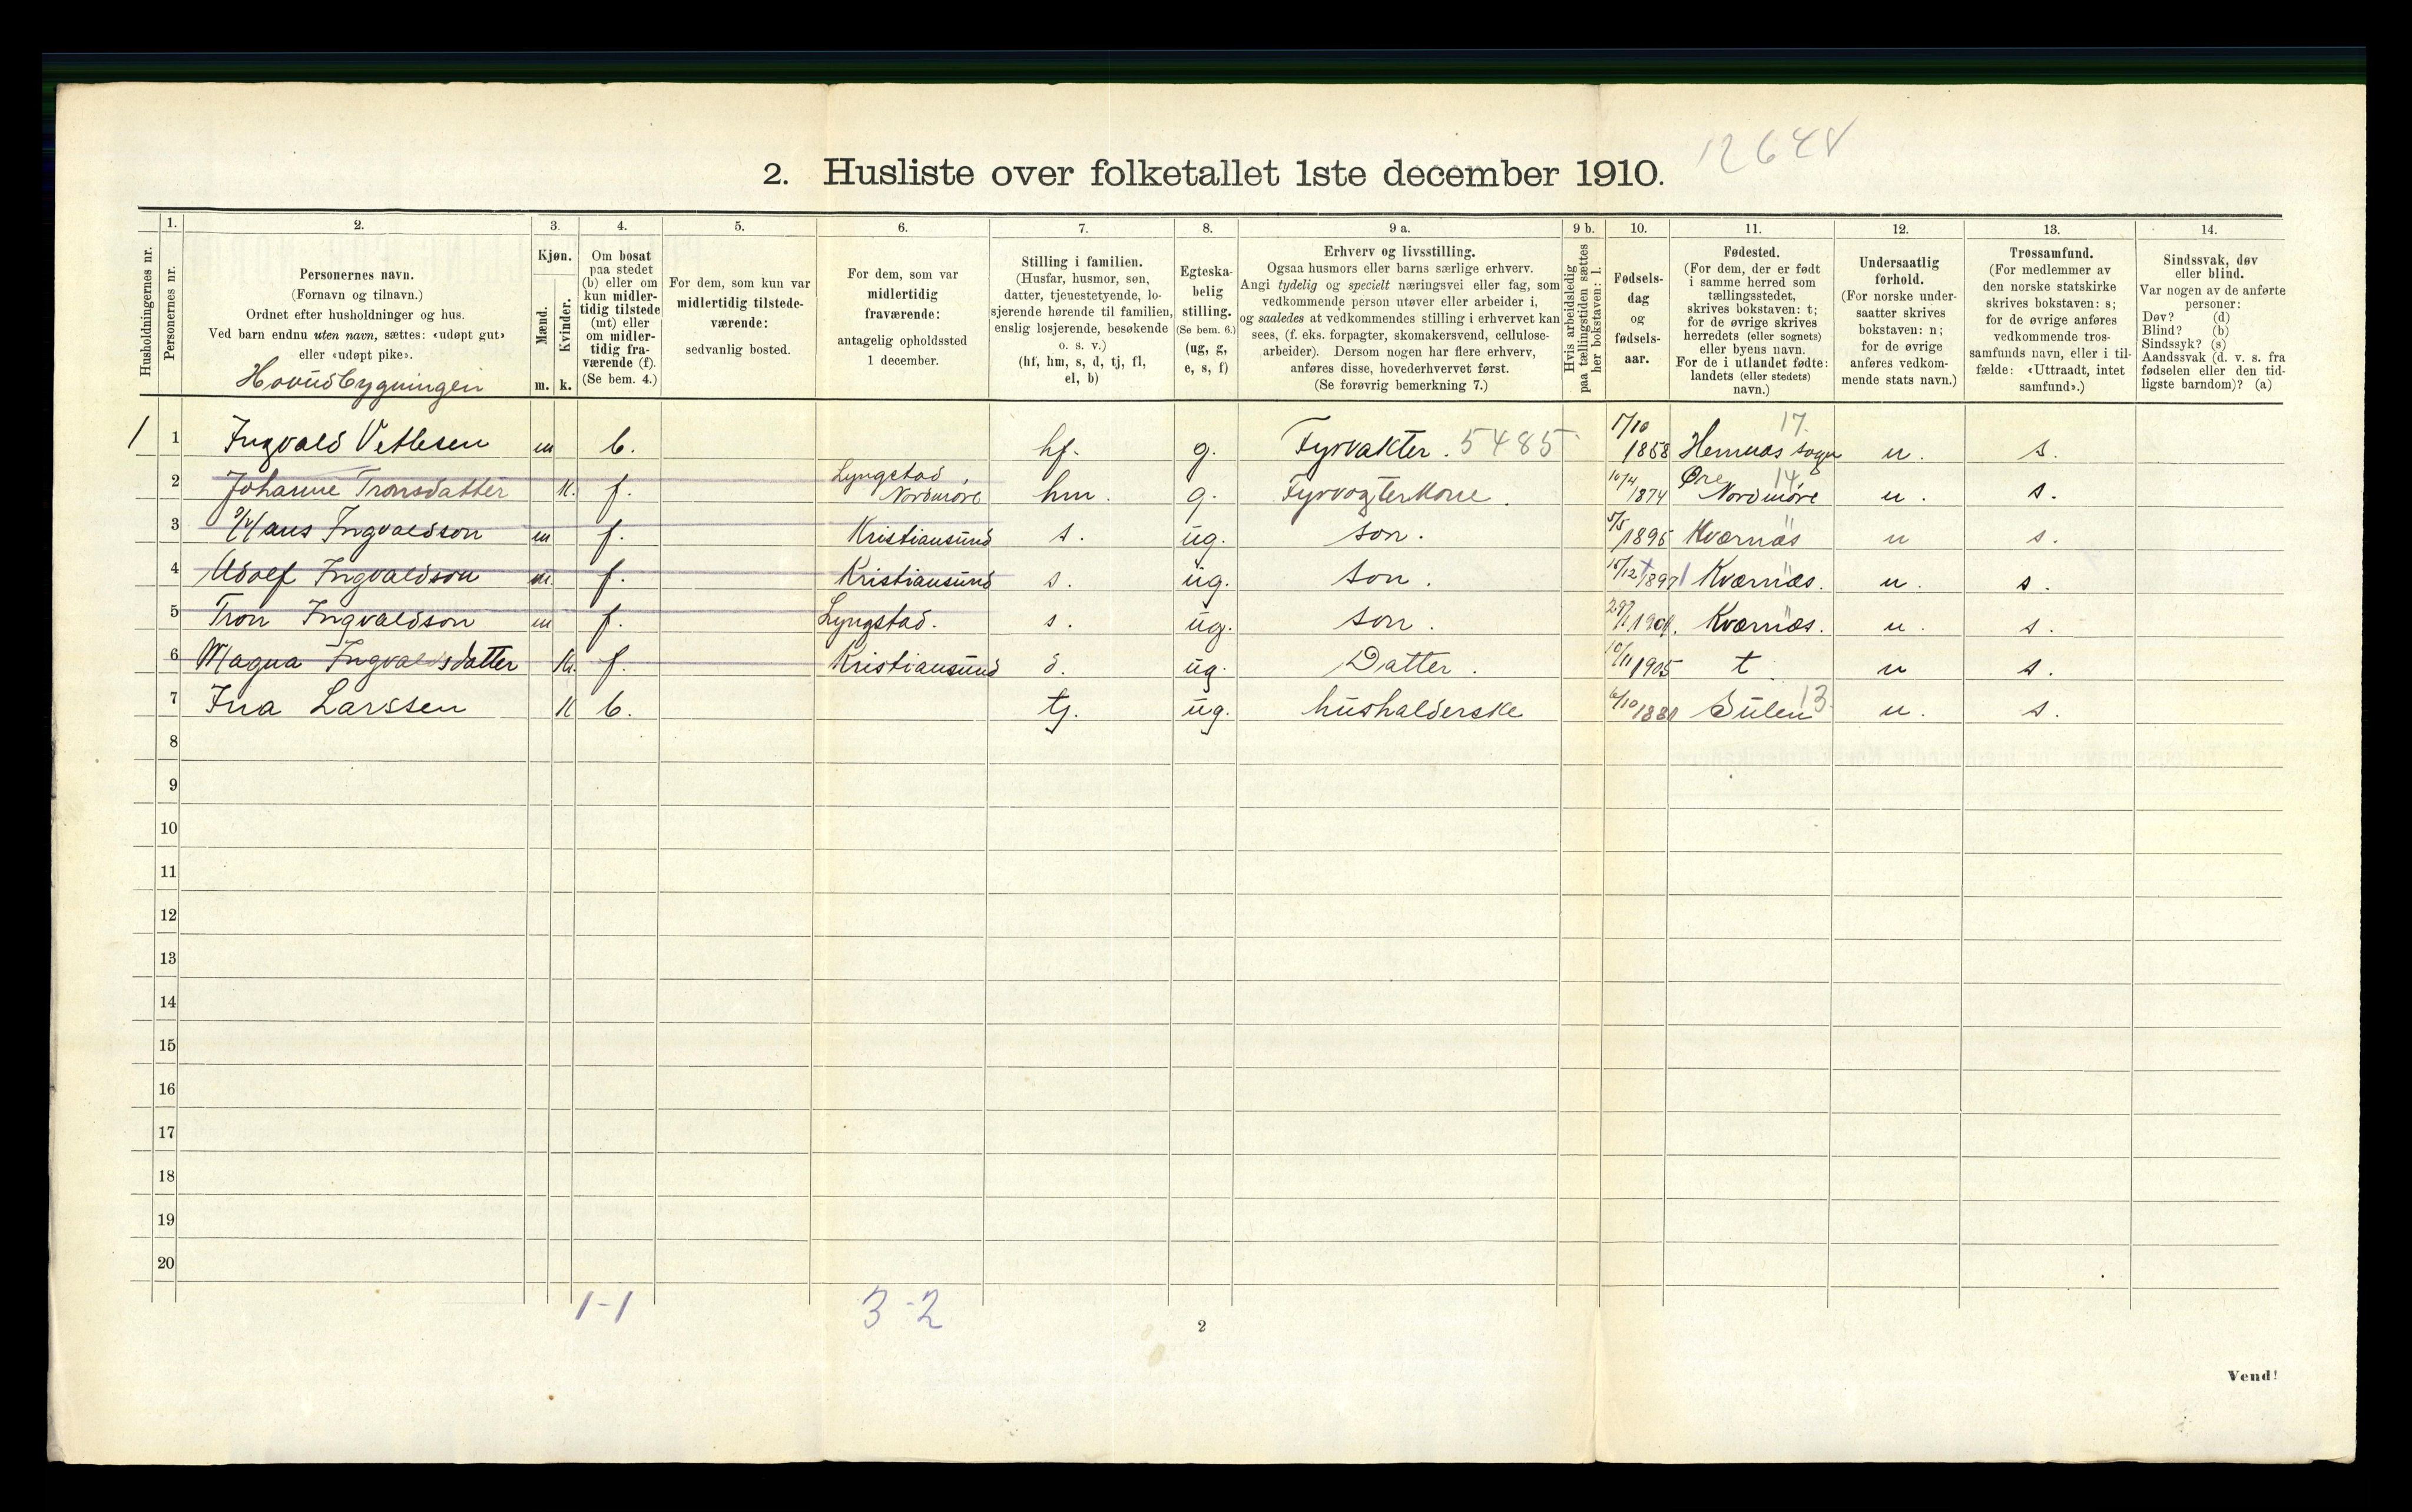 12648
2. Husliste over folketallet 1ste december 1910.
Husholdningernes nr.
1.
Personernes nr.
2.
Personernes navn.
(Fornavn og tilnavn.)
Ordnet efter husholdninger og hus.
Ved barn endnu uten navn, sættes: «udøpt gut»
eller «udøpt pike».
Hovudbygningen
3.
Kjøn.
Mænd.
Kvinder.
m. k.
4.
Om bosat
paa stedet
(b) eller om
kun midler-
tidig tilstede
(mt) eller
om midler-
tidig fra-
værende (f).
(Se bem. 4.)
5.
For dem, som kun var
midlertidig tilstede-
værende:
sedvanlig bosted.
6.
For dem, som var
midlertidig
fraværende:
antagelig opholdssted
1 december.
7.
Stilling i familien.
(Husfar, husmor, søn,
datter, tjenestetyende, lo-
sjerende hørende til familien,
enslig losjerende, besøkende
o. s. v.)
(hf, hm, s, d, tj, fl,
el, b)
8.
Egteska-
belig
stilling.
(Se bem. 6.)
(ug, g,
e, s, f)
9 a.
Erhverv og livsstilling.
Ogsaa husmors eller barns særlige erhverv.
Angi tydelig og specielt næringsvei eller fag, som
vedkommende person utøver eller arbeider i,
og saaledes at vedkommendes stilling i erhvervet kan
sees, (f. eks. forpagter, skomakersvend, cellulose-
arbeider). Dersom nogen har flere erhverv,
anføres disse, hovederhvervet først.
(Se forøvrig bemerkning 7.)
9 b.
Hvis arbeidsledig
paa tællingstiden sættes
her bokstaven: l.
10.
Fødsels-
dag
og
fødsels-
aar.
11.
Fødested.
(For dem, der er født
i samme herred som
tællingsstedet,
skrives bokstaven: t;
for de øvrige skrives
herredets (eller sognets)
eller byens navn.
For de i utlandet fødte:
landets (eller stedets)
navn.)
12.
Undersaatlig
forhold.
(For norske under-
saatter skrives
bokstaven: n;
for de øvrige
anføres vedkom-
mende stats navn.)
13.
Trossamfund.
(For medlemmer av
den norske statskirke
skrives bokstaven: s;
for de øvrige anføres
vedkommende tros-
samfunds navn, eller i til-
fælde: «Uttraadt, intet
samfund».)
14.
Sindssvak, døv
eller blind.
Var nogen av de anførte
personer:
Døv? (d)
Blind? (b)
Sindssyk? (s)
Aandssvak (d. v. s. fra
fødselen eller den tid-
ligste barndom)? (a)
1 1 Ingvald Vetlesen m b. hf. g. Fyrvakter. 5485 1858 sogn 17. n. s.
2 Johanne Tronsdatter k. f. Lyngstad, Nordmøre hm. g. Fyrvogterkone. 10/4 1874 Øre Nordmøre 14 n. s.
3 Hans Ingvaldson m f. Kristiansund s. ug. son. 5/5 1895 Kværnæs n s.
4 Adolf Ingvaldson m. f. Kristiansund s. ug. son. 15/12 1897 Kværnæs. n. s.
5 Tron Ingvaldson m f. Lyngstad. s. ug. son. Kværnæs. n. s.
6 Magna Ingvaldsdatter k. f. Kristiansund d. ug. Datter. 10/11 1905 t n s.
7 Ina Larssen k b. tj. ug. husholderske 6/10 1880 Sulen 13 n. s.
8
9
10
11
12
13
14
15
16
17
18
19
20
1-1 3-2
2
Vend!